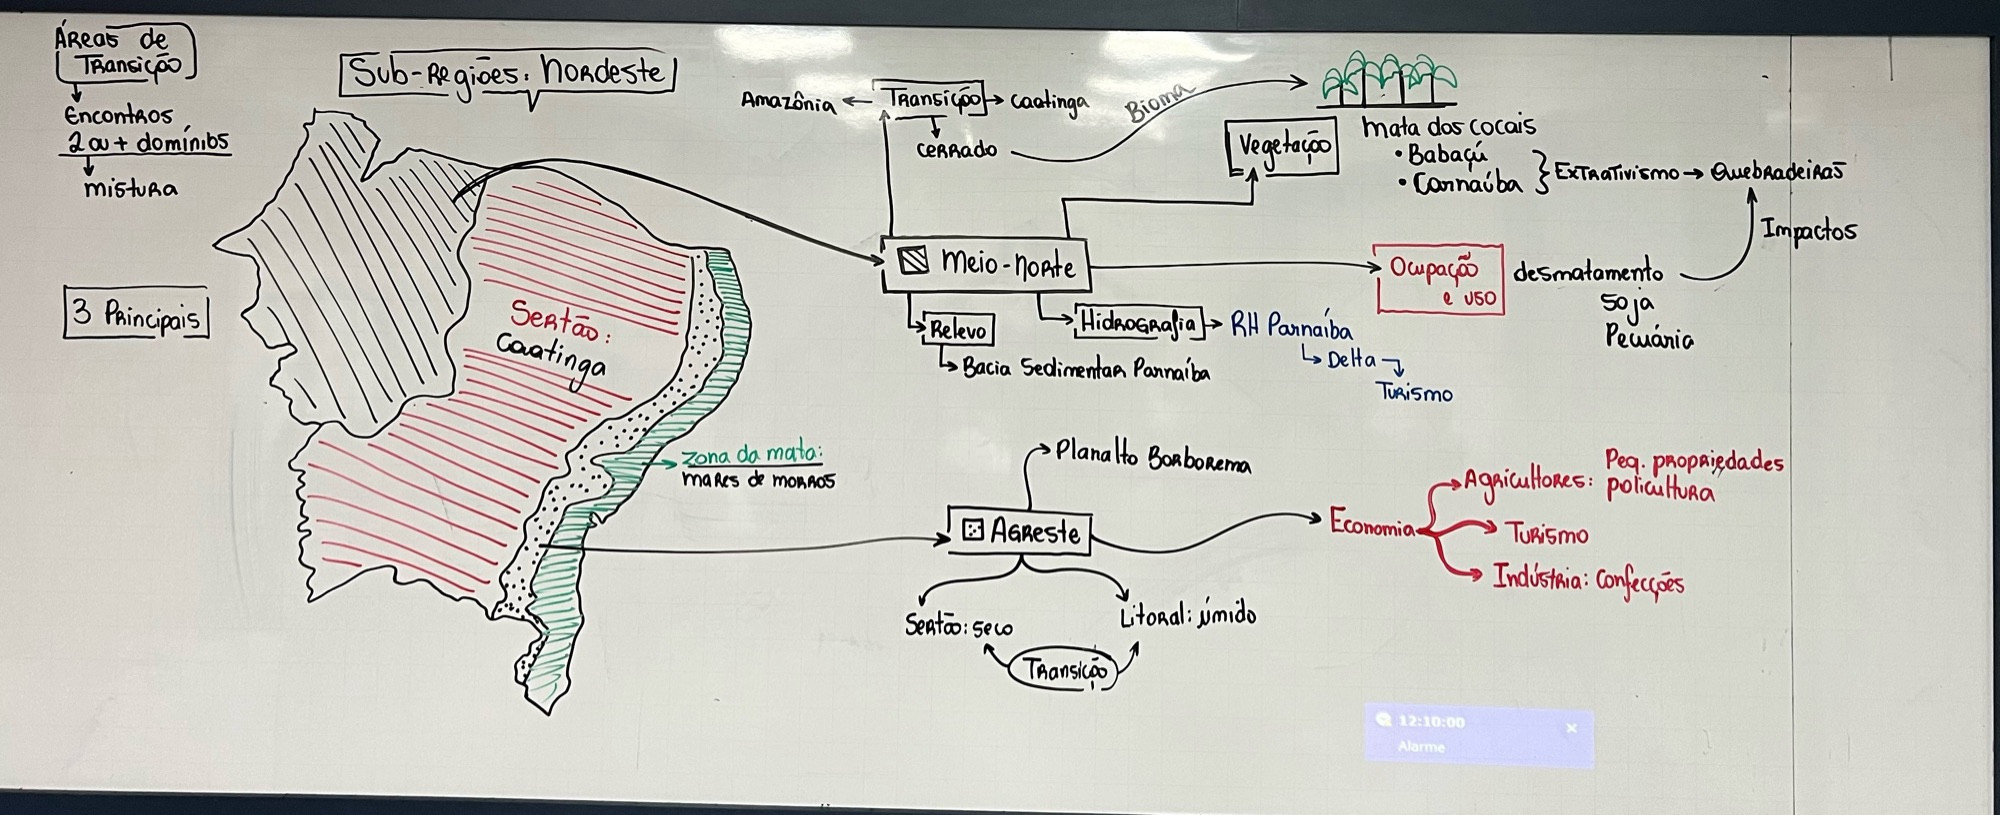 Áreas de
Transição
Encontros
2 ou + domínios
mistura
3 Principais
Sub-Regiões: Nordeste
Sertão:
Caatinga
Zona da mata:
mares de morros
Amazônia
Transição
Caatinga
Cerrado
Bioma
Vegetação
Mata dos cocais
• Babaçú
• Carnaúba
Extrativismo
Quebradeiras
Impactos
Meio-Norte
Ocupação
e uso
desmatamento
Soja
Pecuária
Relevo
Bacia Sedimentar Parnaíba
Hidrografia
RH Parnaíba
Delta
Turismo
Planalto Borborema
Agreste
Sertão: seco
Litoral: úmido
Transição
Economia
Agricultores: Peq. propriedades
policultura
Turismo
Indústria: Confecções
12:10:00
Alarme